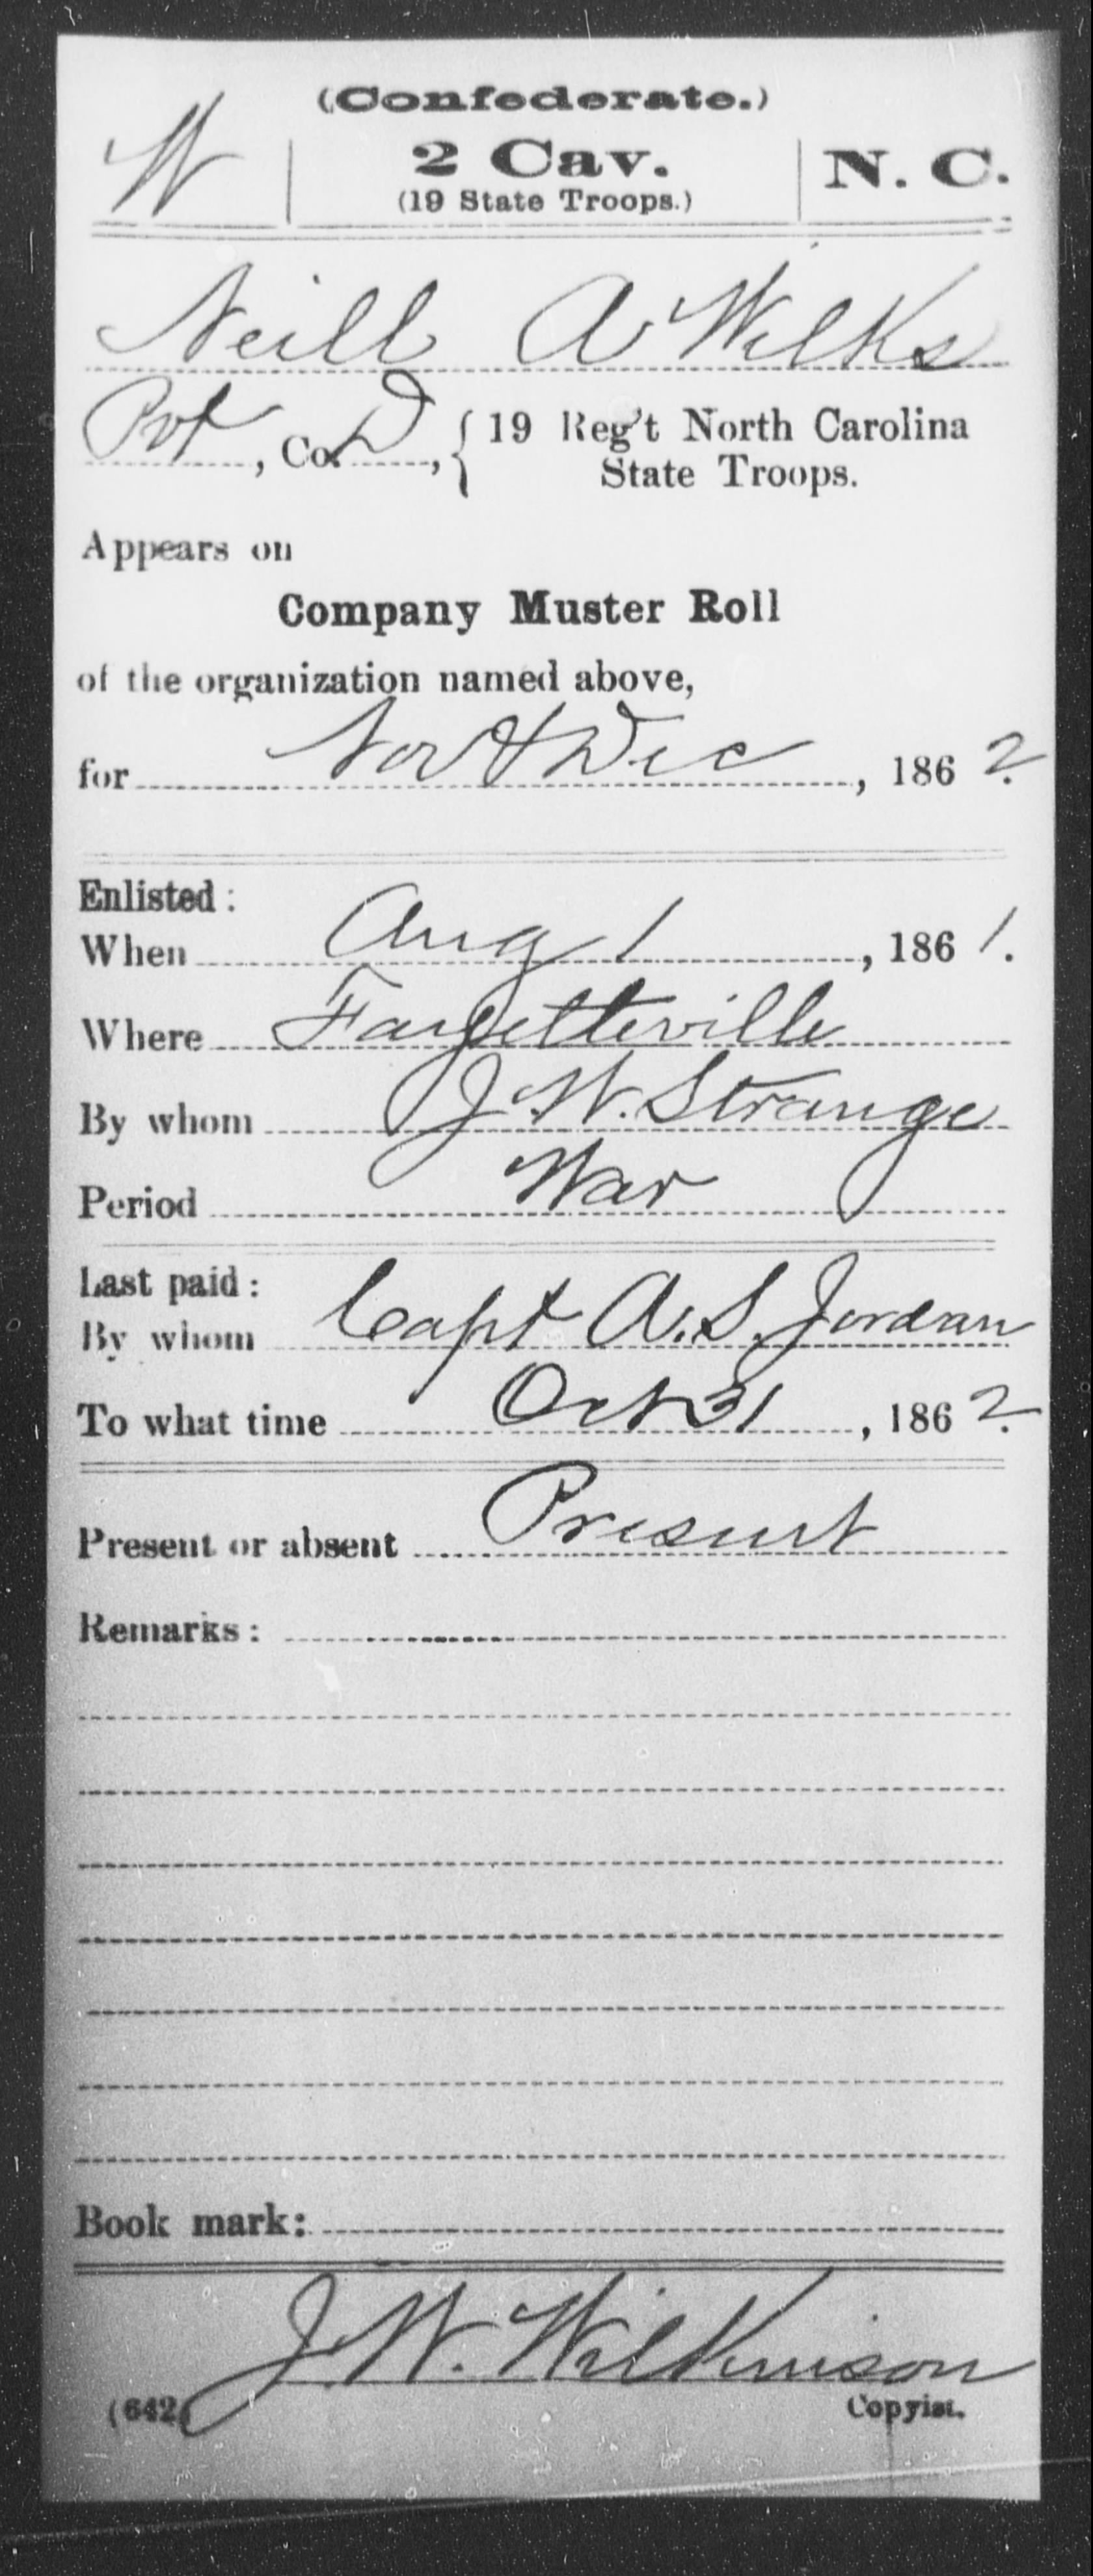 (Confederate.)
W | 2 Cav. | N. C.
(19 State Troops.)
Neill A Wilks
Pvt, Co. D, { 19 Reg't North Carolina
State Troops.
Appears on
Company Muster Roll
of the organization named above,
for Nov & Dec, 1862.
Enlisted:
When Aug 1, 1861.
Where Fayetteville
By whom J. W. Strange
Period War
Last paid:
By whom Capt A. S. Jordan
To what time Oct 31, 1862.
Present or absent Present
Remarks:
Book mark:
J. W. Wilkinson
(642) Copyist.